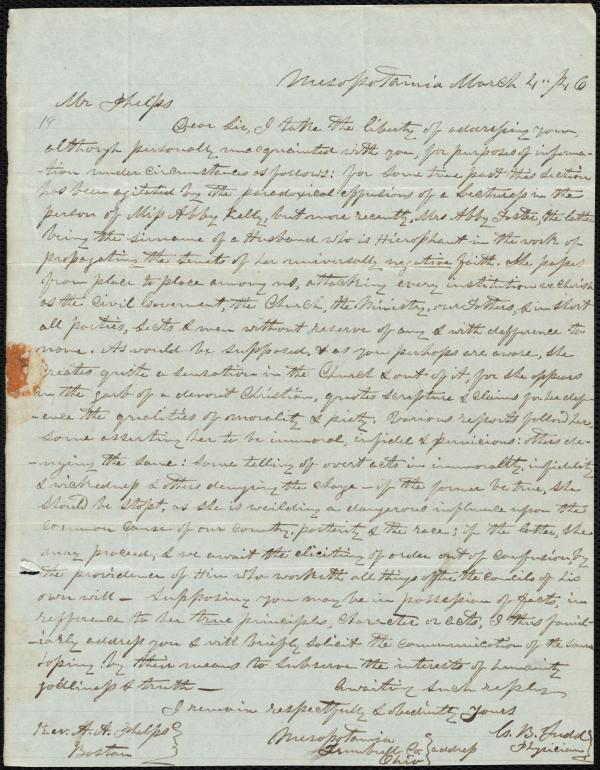 Mesopotamia March 4" /46
Mr Phelps
19
Dear Sir, I take the liberty of addressing you,
although personally unacquainted with you, for purposes of informa-
-tion under circumstances as follows: for some time past this section
has been agitated by the paradoxical effusions of a Lecturess in the
person of Miss Abby Kelly, but more recently, Mrs Abby Foster, the latter
being the surname of a Husband who is Hierophant in the work of
propagating the tenets of her universally negative faith. She passes
from place to place among us, attacking every institution we cherish
as the Civil Goverment, the Church, the Ministry, our Fathers, & in short
all parties, sects & men without reserve of any & with defference to
none. As would be supposed, & as you perhaps are aware, she
creates quite a sensation in the Church & out of it, for she appears
in the garb of a devout Christian, quotes scripture & claims for her def-
-ence the qualities of morality & piety. Various reports follow her,
some asserting her to be immoral, infidel & pernicious: others de-
-nying the same: Some telling of overt acts in immorality, infidelity
& wickedness & others denying the charge – if the former be true, she
should be stopt, as she is weilding a dangerous influence upon the
common cause of our country, posterity & the race; if the latter, she
may proceed, & we await the eliciting of order out of confusion, by
the providence of Him who worketh all things after the councils of his
own will – Supposing you may be in possession of facts, in
refference to her true principles, character or acts, I thus famil-
-iarly address you & will briefly solicit the communication of the same
hoping by these means to subserve the interests of humanity
godliness & truth –
Awaiting such reply
I remain respectfully & obediently Yours
Rev. A. A. Phelps
Boston
Mesopotamia
Trumbull Co.
Ohio
address
G. B. Judd
Physician